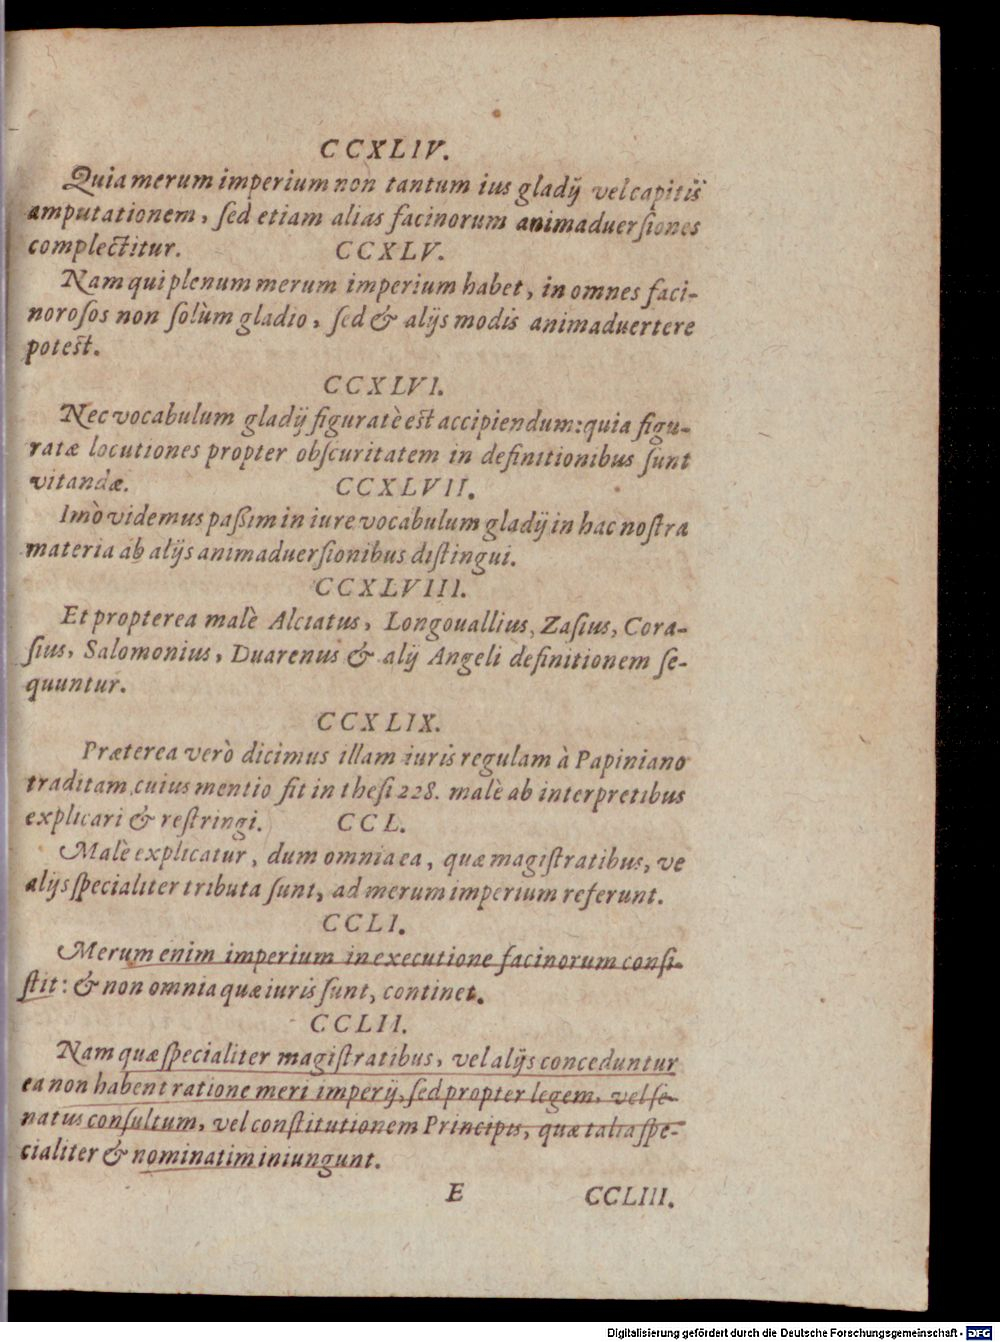 CCXLIV.
Quia merum imperium non tantum ius gladij vel capitis
amputationem, sed etiam alias facinorum animaduersiones
complectitur. CCXLV.
Nam qui plenum merum imperium habet, in omnes faci-
norosos non solùm gladio, sed & alijs modis animaduertere
potest.
CCXLVI.
Nec vocabulum gladij figuratè est accipiendum: quia figu-
ratæ locutiones propter obscuritatem in definitionibus sunt
vitandæ. CCXLVII.
Imò videmus paßim in iure vocabulum gladij in hac nostra
materia ab alijs animaduersionibus distingui.
CCXLVIII.
Et propterea malè Alciatus, Longouallius, Zasius, Cora-
sius, Salomonius, Duarenus & alij Angeli definitionem se-
quuntur.
CCXLIX.
Præterea verò dicimus illam iuris regulam à Papiniano
traditam, cuius mentio fit in thesi 228. malè ab interpretibus
explicari & restringi. CCL.
Malè explicatur, dum omnia ea, quæ magistratibus, ve
alijs specialiter tributa sunt, ad merum imperium referunt.
CCLI.
Merum enim imperium in executione facinorum consi-
stit: & non omnia quæ iuris sunt, continet.
CCLII.
Nam quæ specialiter magistratibus, vel alijs conceduntur
ea non habent ratione meri imperij, sed propter legem, vel se-
natus consultum, vel constitutionem Principis, quæ talia spe-
cialiter & nominatim iniungunt.
E CCLIII.
Digitalisierung gefördert durch die Deutsche Forschungsgemeinschaft - DFG